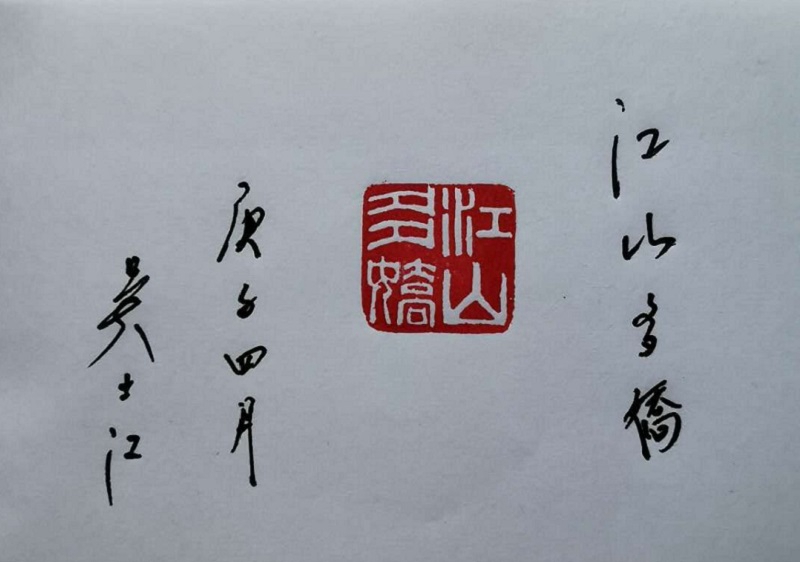 江山多娇
江山多嬌
庚子四月
吴士江